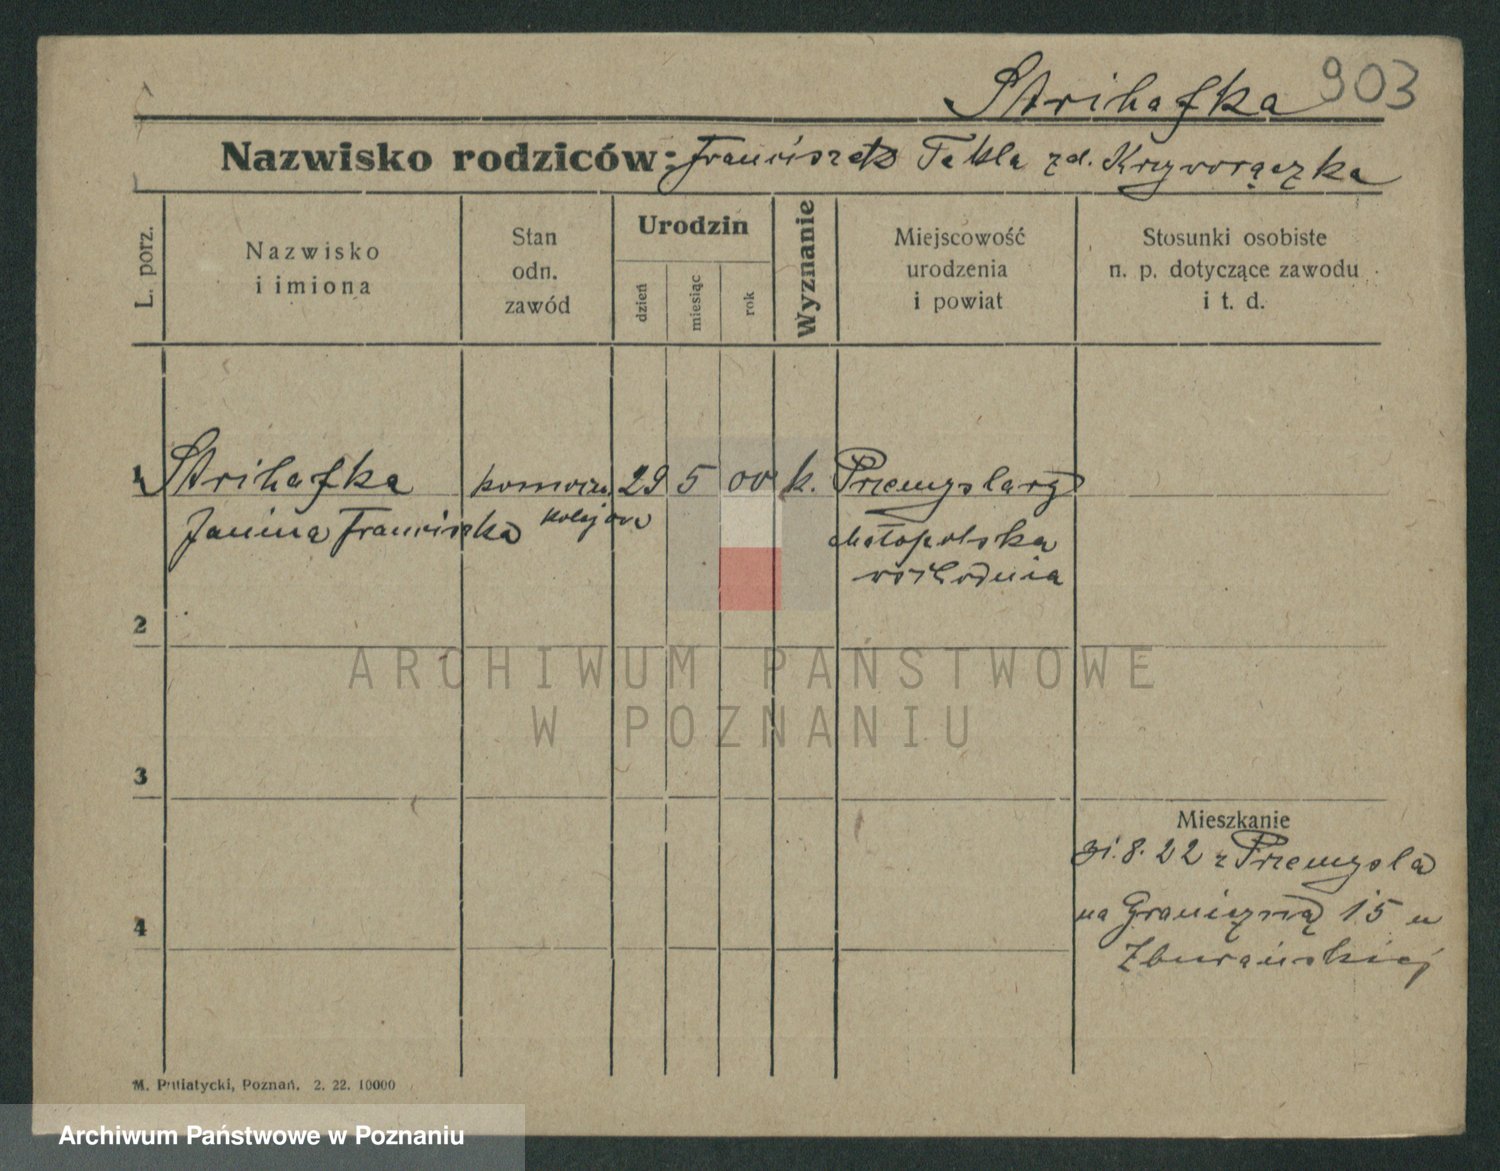 Strihafka 903
Nazwisko rodziców: Franciszek Tekla zd. Krzyworączka
L. porz.
Nazwisko
i imiona
Stan
odn.
zawód
Urodzin
dzień
miesiąc
rok
Wyznanie
Miejscowość
urodzenia
i powiat
Stosunki osobiste
n. p. dotyczące zawodu
i t. d.
1 Strihafka 29 5 00 k. Przemyslany
Janina Franciszka kolejowa Małopolska
wschodnia
2
ARCHIWUM PAŃSTWOWE
W POZNANIU
3
Mieszkanie
8. 22 z Przemysla
4
na Graniczną 15 u
Zburańskiej
M. Putiatycki, Poznań. 2. 22. 10000
Archiwum Państwowe w Poznaniu